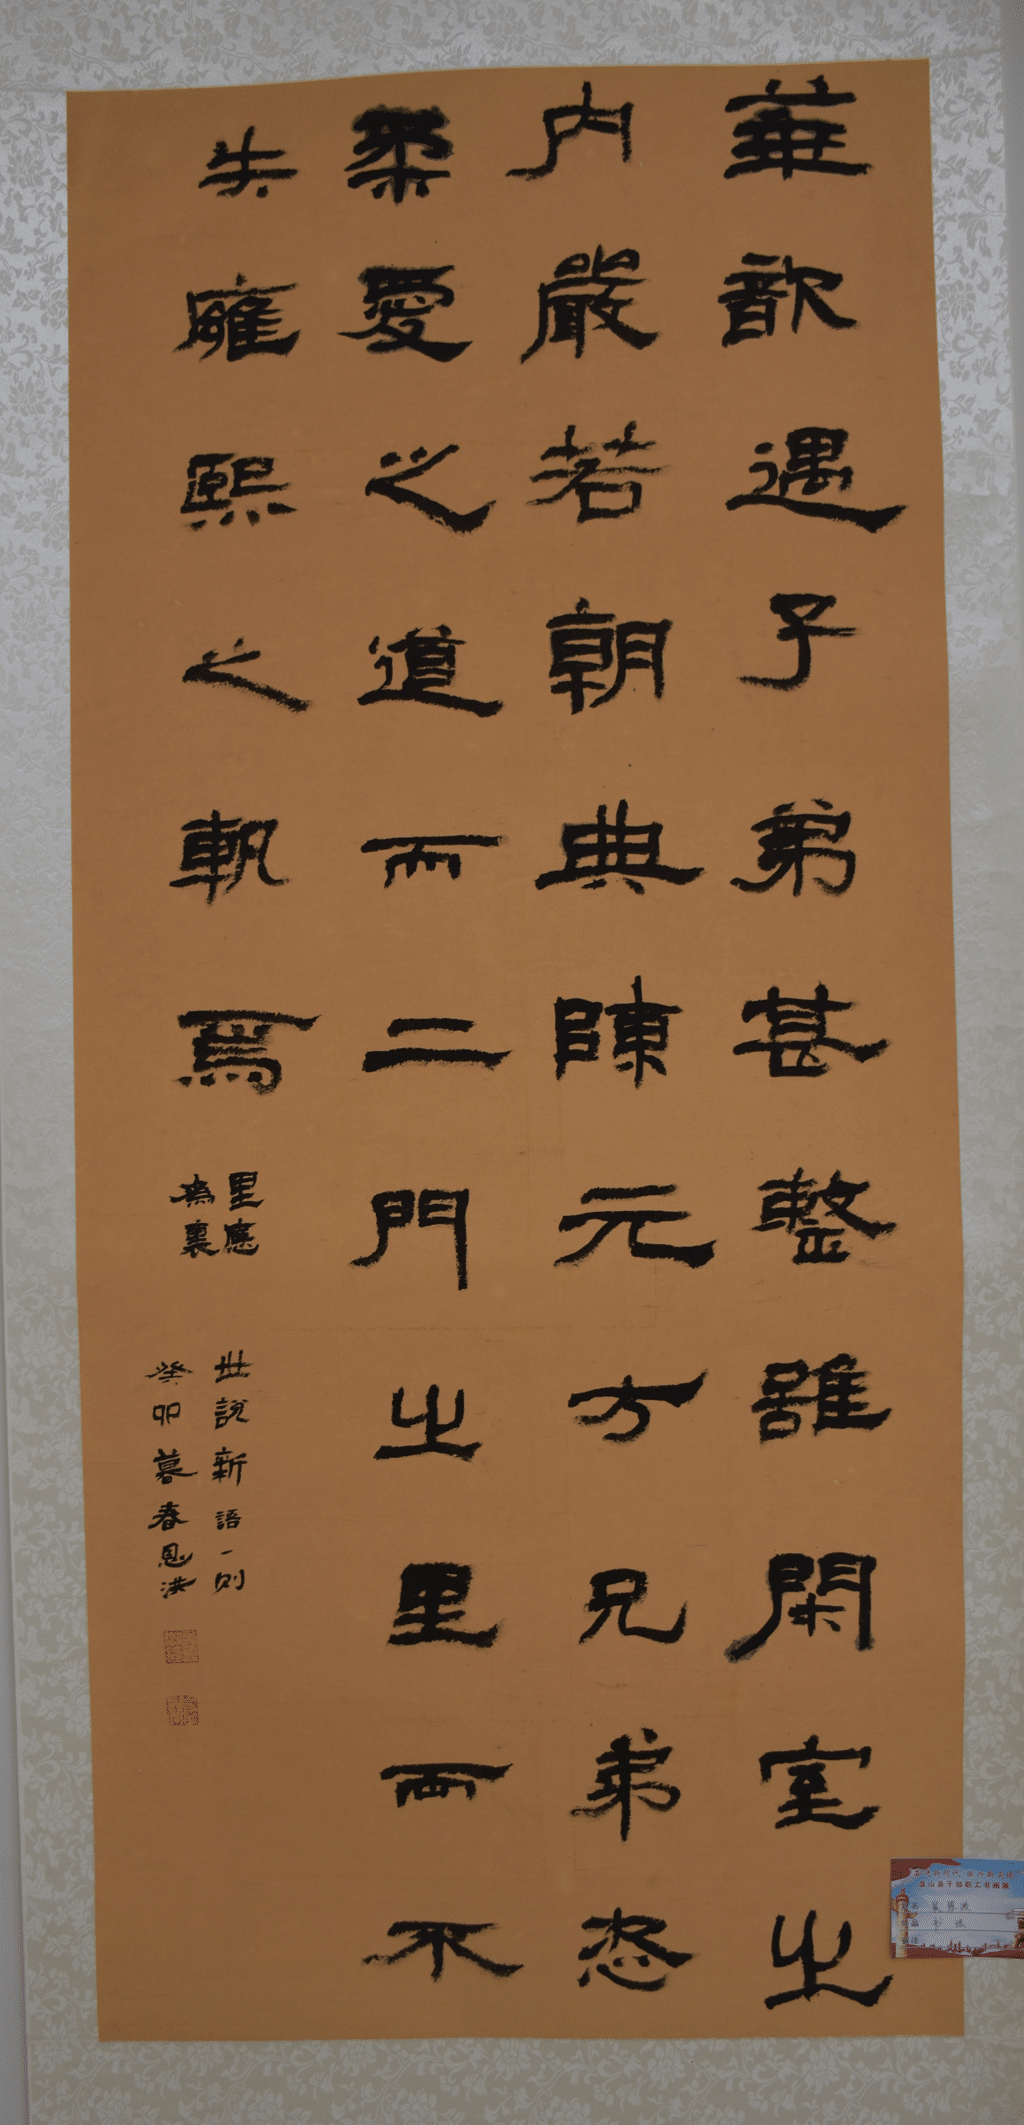 華歆遇子弟甚整雖閑室之
内嚴若朝典陳元方兄弟恣
柔愛之道而二門之里兩不
失雍熙之軌焉
里應
為裏
世說新語一則
癸卯暮春恩洪